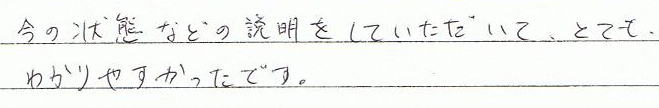 今の状態などの説明をしていただいて、とても、
わかりやすかったです。